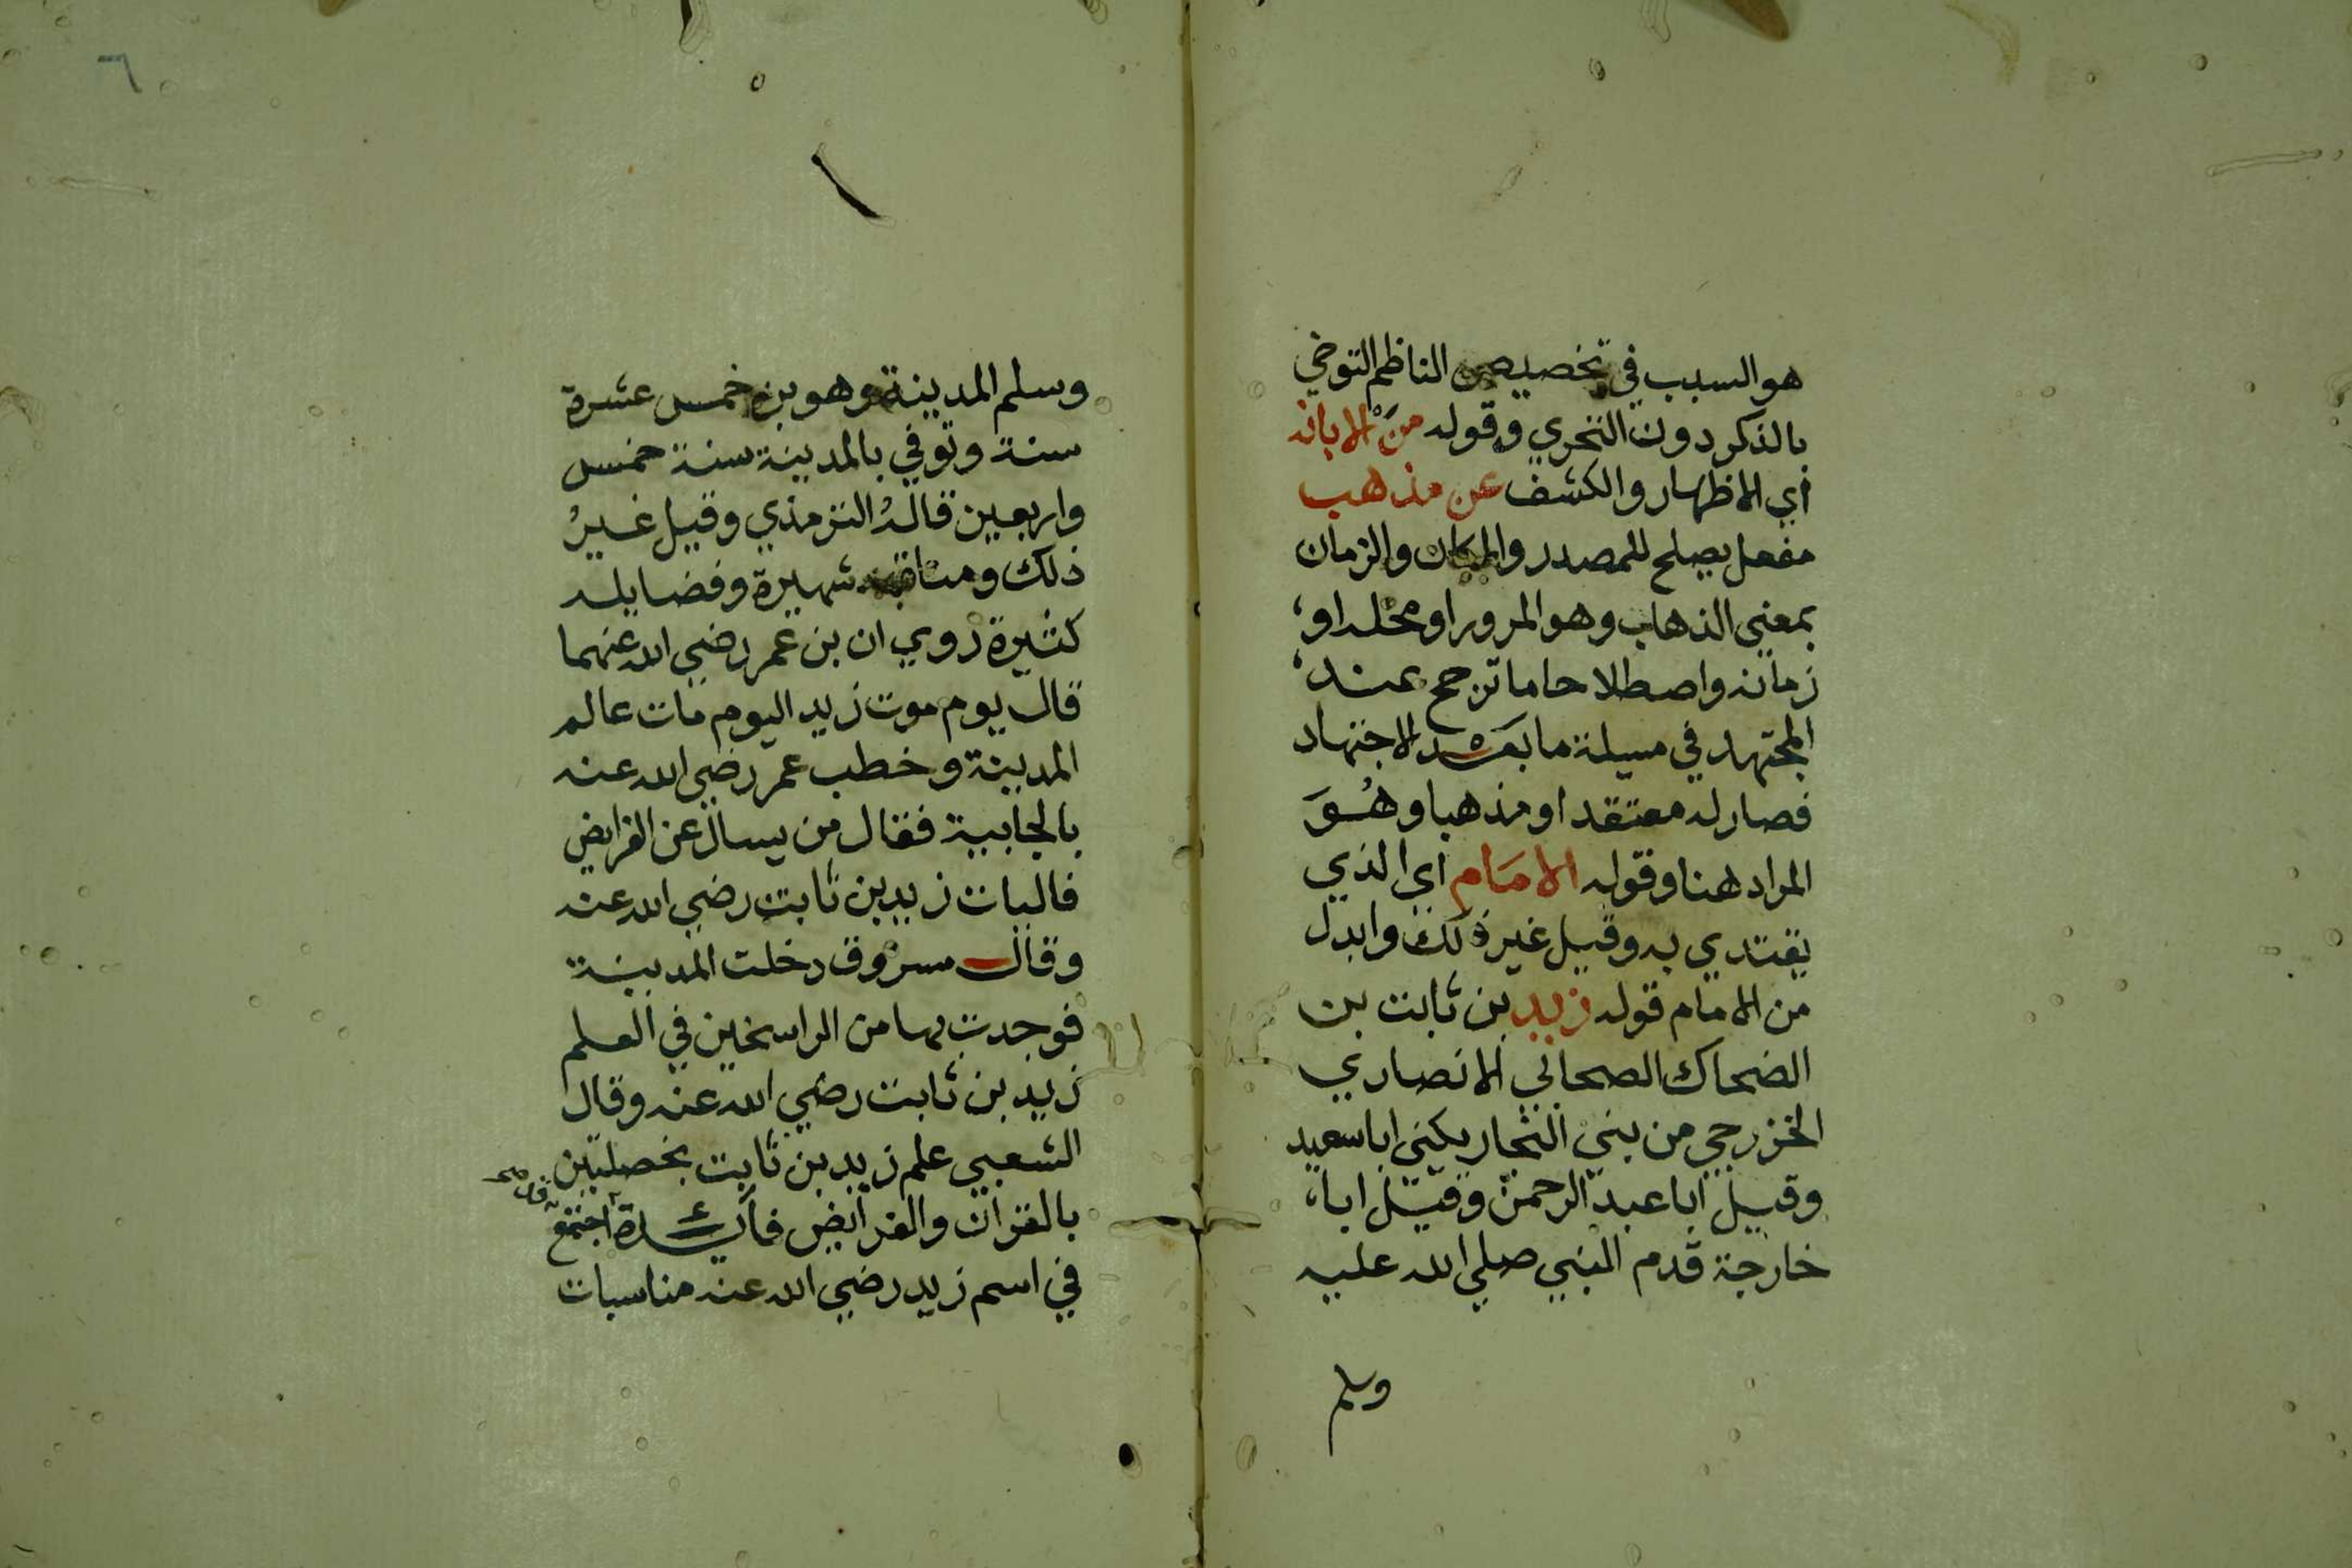 هو السبب في تخصيص الناظم التوخي
بالذكر دون التحري وقوله من الابانه
أي الاظهار والكشف عن مذهب
مفعل يصلح للمصدر والمكان والزمان
بمعني الذهاب وهو المرور او محله او
زمانه واصطلاحا ما ترجح عند
المجتهد في مسيلة ما بعد الاجتهاد
فصار له معتقدا ومذهبا وهُوَ
المراد هنا وقوله الامام اي الذي
يقتدي به وقيل غير ذلك وابدل
من الامام قوله زيد بن ثابت بن
الضحاك الصحابي الانصاري
الخزرجي من بني النجار يكني ابا سعيد
وقيل ابا عبد الرحمن وقيل ابا
خارجة قدم النبي صلي الله عليه
وسلم
٦
وسلم المدينة وهو بن خمس عشرة
سنة وتوفي بالمدينة سنة خمس
واربعين قاله الترمذي وقيل غيرُ
ذلك ومناقبه شهيرة وفضايله
كثيرة روي ان بن عمر رضي الله عنهما
قال يوم موت زيد اليوم مات عالم
المدينة وخطب عمر رضي الله عنه
بالجابية فقال من يسال عن الفرايض
فاليات زيد بن ثابت رضي الله عنه
وقال مسروق دخلت المدينة
فوجدت بها من الراسخين في العلم
زيد بن ثابت رضي الله عنه وقال
الشعبي علم زيد بن ثابت بخصلتين
بالقران والفرائض فايدة اجتمع
في اسم زيد رضي الله عنه مناسبات